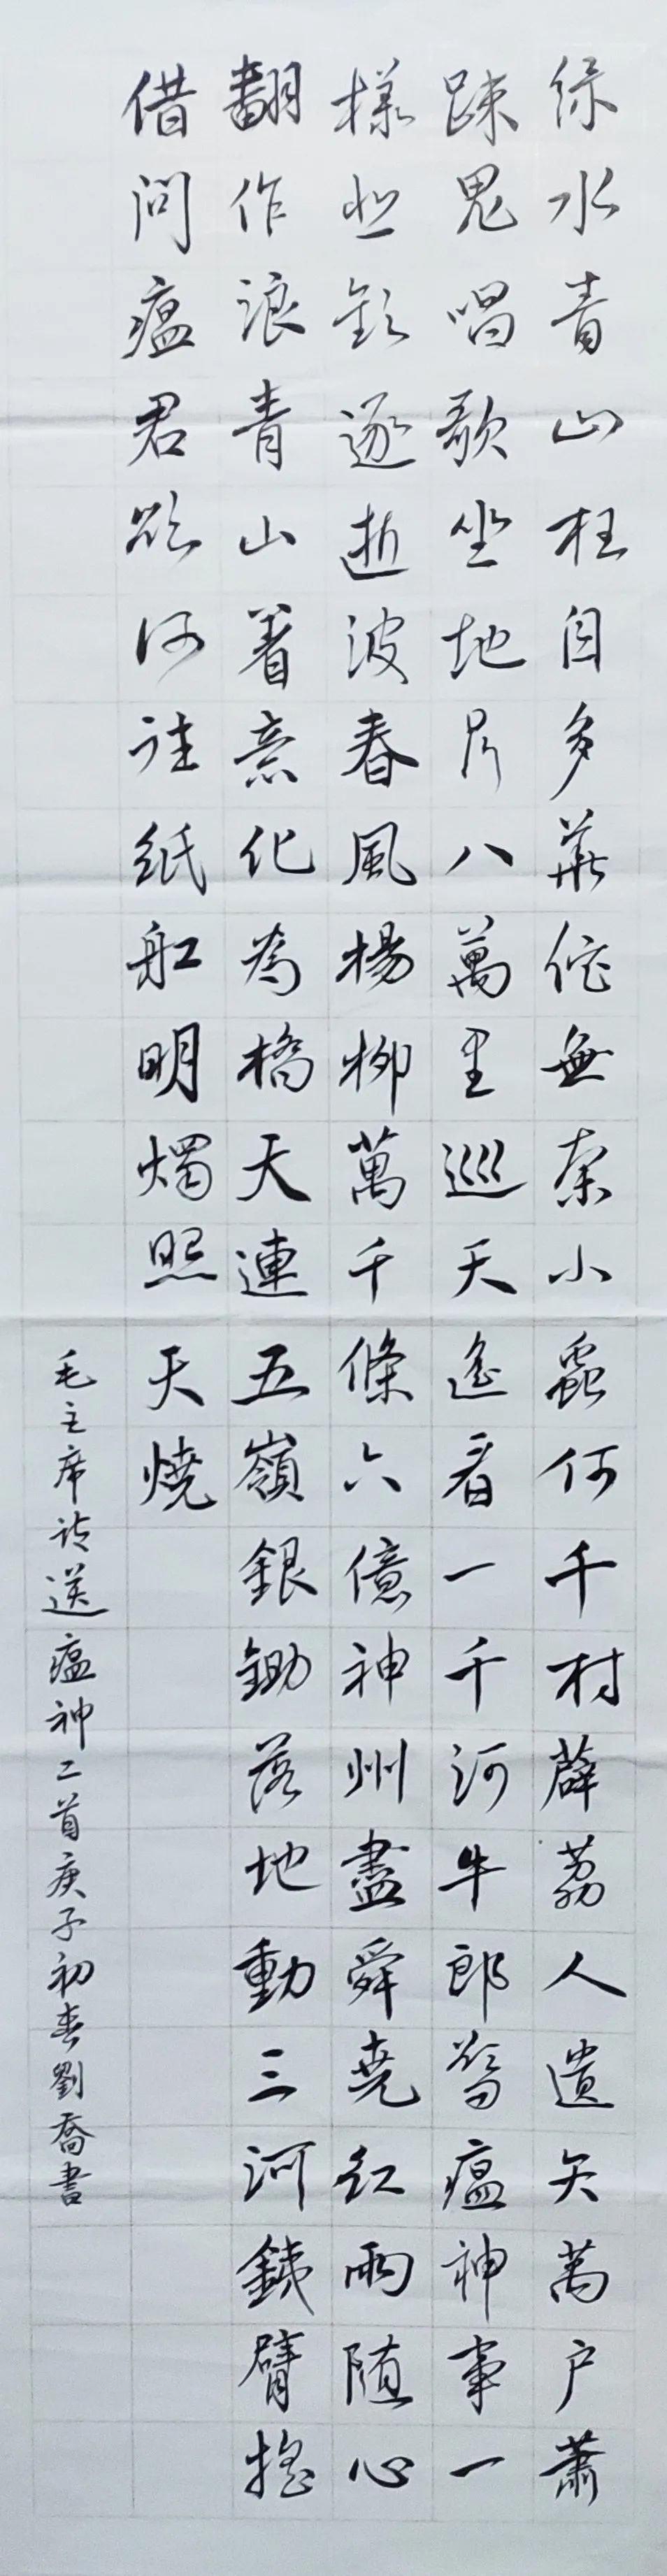 綠水青山枉自多華佗無奈小蟲何千村薜荔人遺矢萬户蕭
踈鬼唱歌坐地日行八萬里巡天遙看一千河牛郎欲問瘟神事一
樣悲歡逐逝波春風楊柳萬千條六億神州盡舜堯紅雨随心
翻作浪青山着意化為橋天連五嶺銀鋤落地動三河銕臂搖
借問瘟君欲何往紙船明燭照天燒
毛主席詩送瘟神二首庚子初春劉喬書